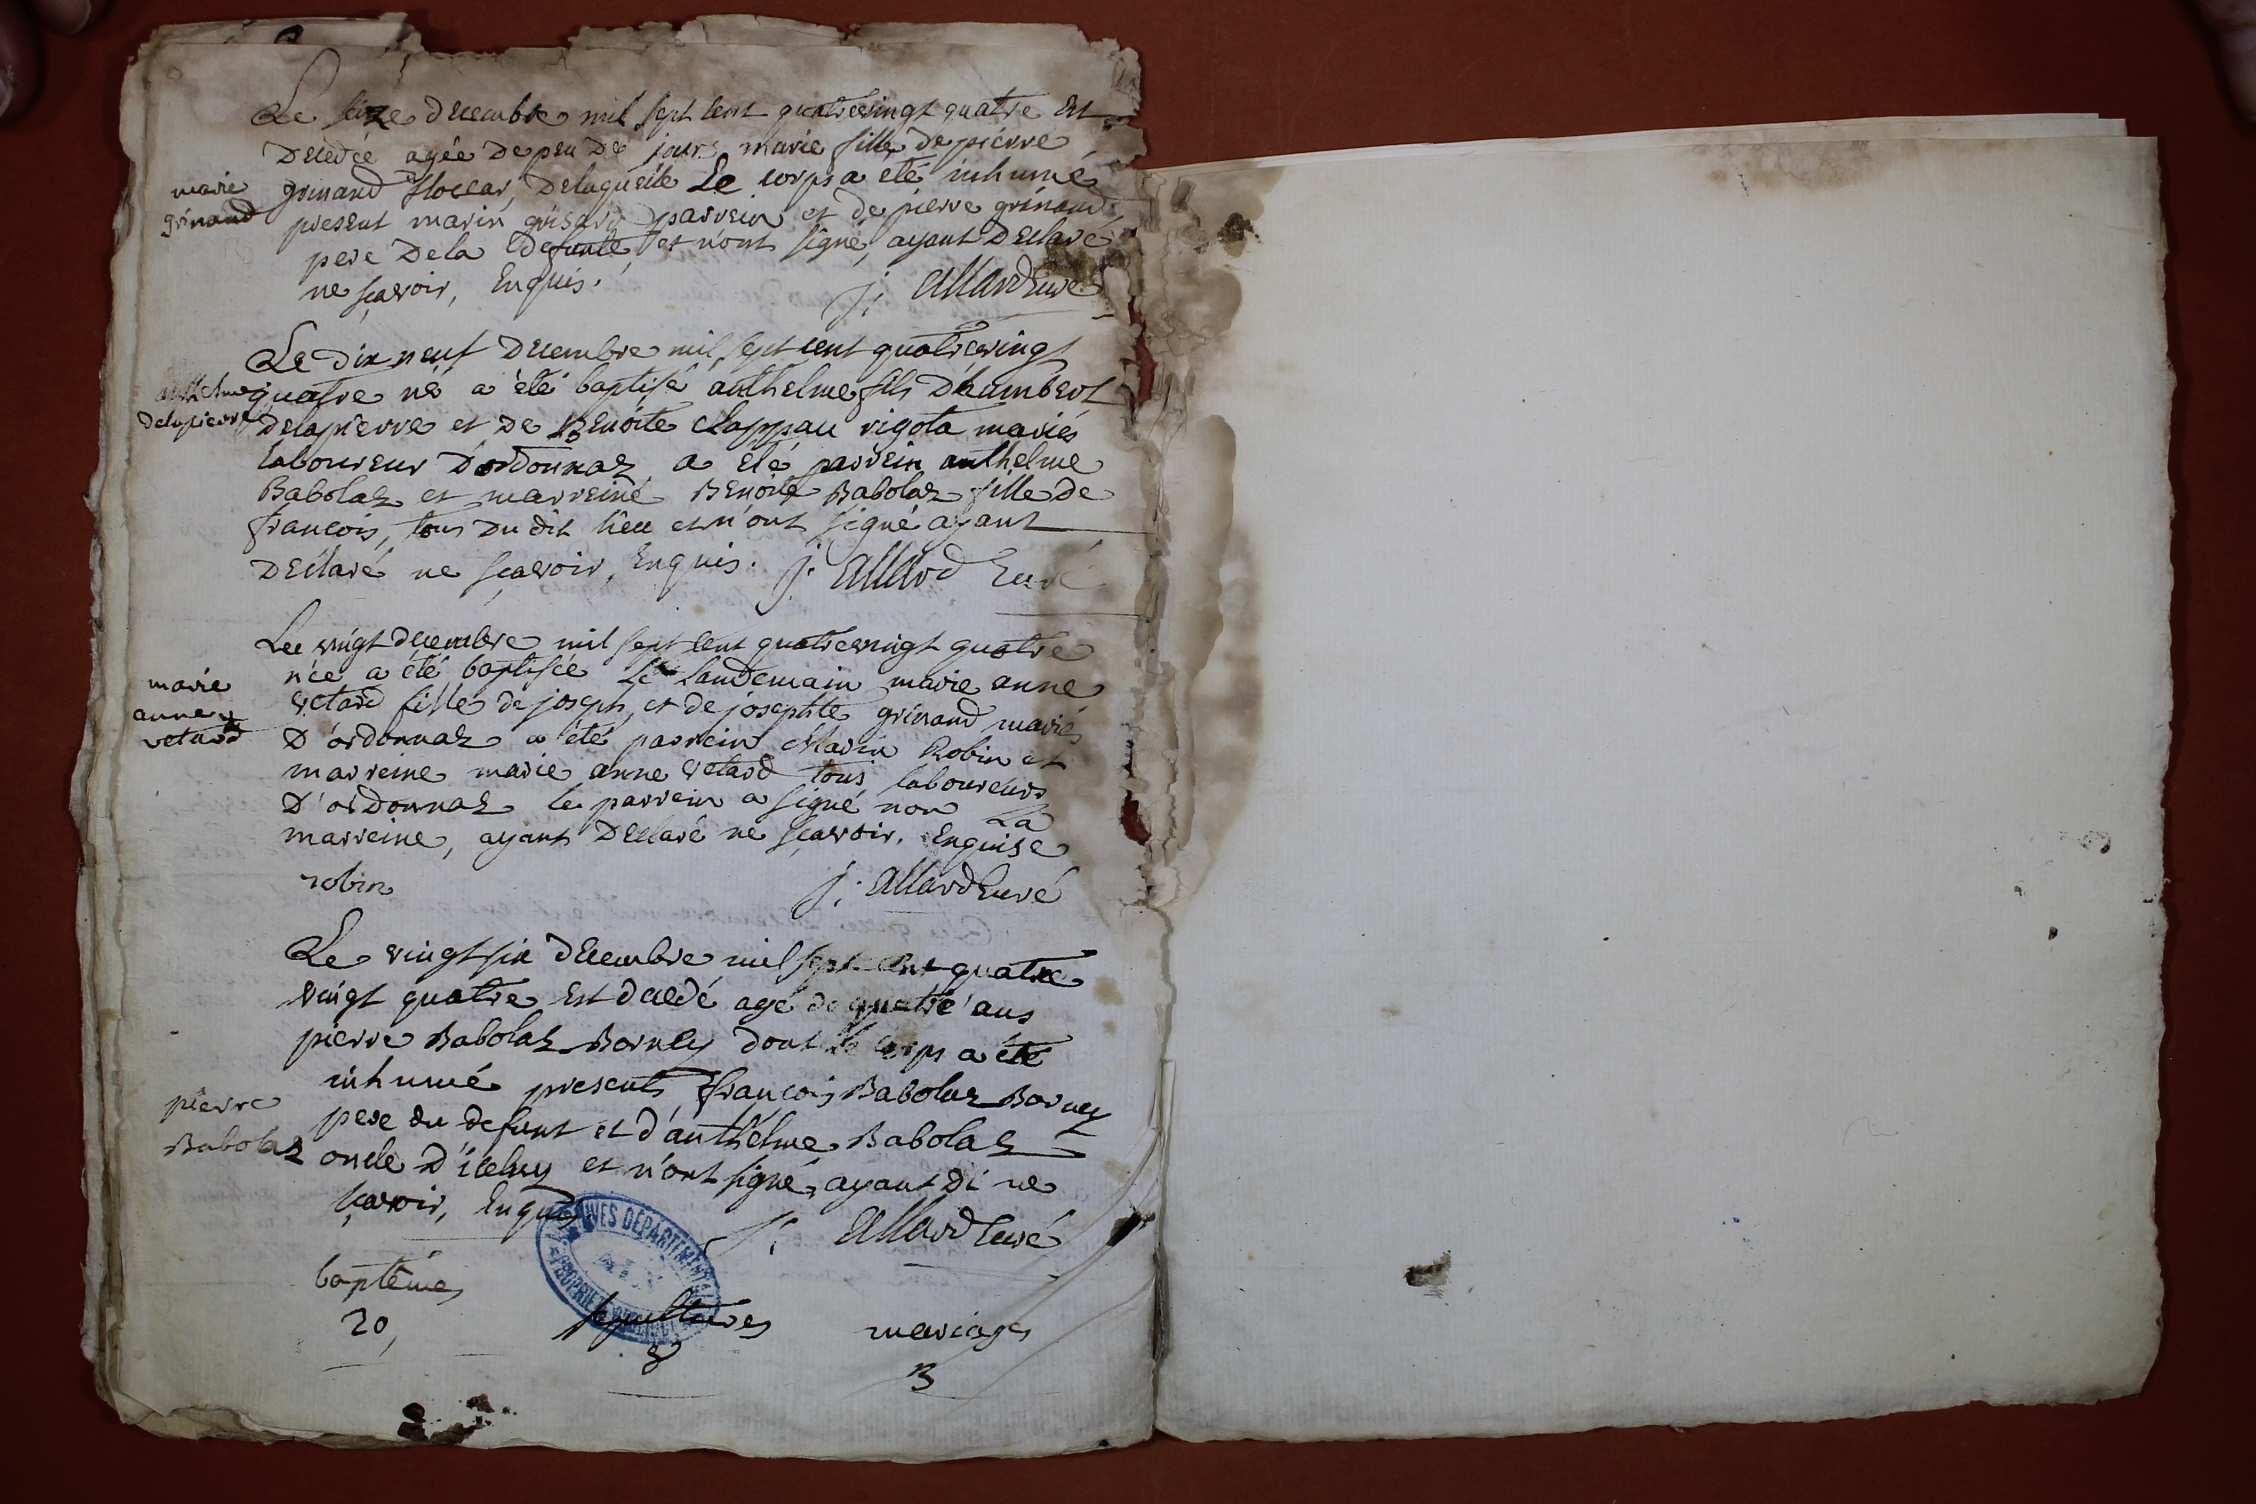 Le seize decembre mil sept cent quatrevingt quatre est
decedée agée de peu de jours marie fille de pierre
marie
grinand
grinand floccar, Delagueite Le corps a eté inhumé
present marin grisard parrein et de pierre grinand
pere De la defunte, et n'ont signé, ayant Declaré
ne sçavoir, Enquis.
j: allard Curé
Le Dix neuf Decembre mil sept cent quatrevingt
anthelme
delapierre
quatre né a été baptisé anthelme fils D'humbert
Delapierre et De Benoite Clappau rigota mariés
laboureur D'ordonnaz a eté parrein anthelme
Babolaz et marreine Benoite Babolaz fille de
françois, tous du dit lieu et n'ont signé ayant
Declaré ne sçavoir, Enquis. j: allard Curé
Le vingt decembre mil sept cent quatrevingt quatre
née a été baptisée le landemain marie anne
marie
anne
vetard
vetard fille de joseph, et de josephte grinand mariés
D'ordonnaz a été parrein Marin Robin et
marreine marie anne vetard tous laboureurs
D'ordonnaz le parrein a signé non La
marreine, ayant Declaré ne sçavoir. Enquise
robin
j: allard Curé
Le vingt six decembre mil sept cent quatre
vingt quatre est decedé agé de quatre ans
pierre Babolaz Borney dont le corps a été
inhumé presents françois Babolaz Borney
pierre
Babolaz
pere du defunt et d'anthelme Babolaz
oncle D'iceluy et n'ont signé, ayant di ne
sçavoir, Enquis
j: allard Curé
ARCHIVES DÉPARTEMENTALES
PROPRIÉTÉ PUBLIQUE
baptêmes
sepultures
mariages
20,
8
3